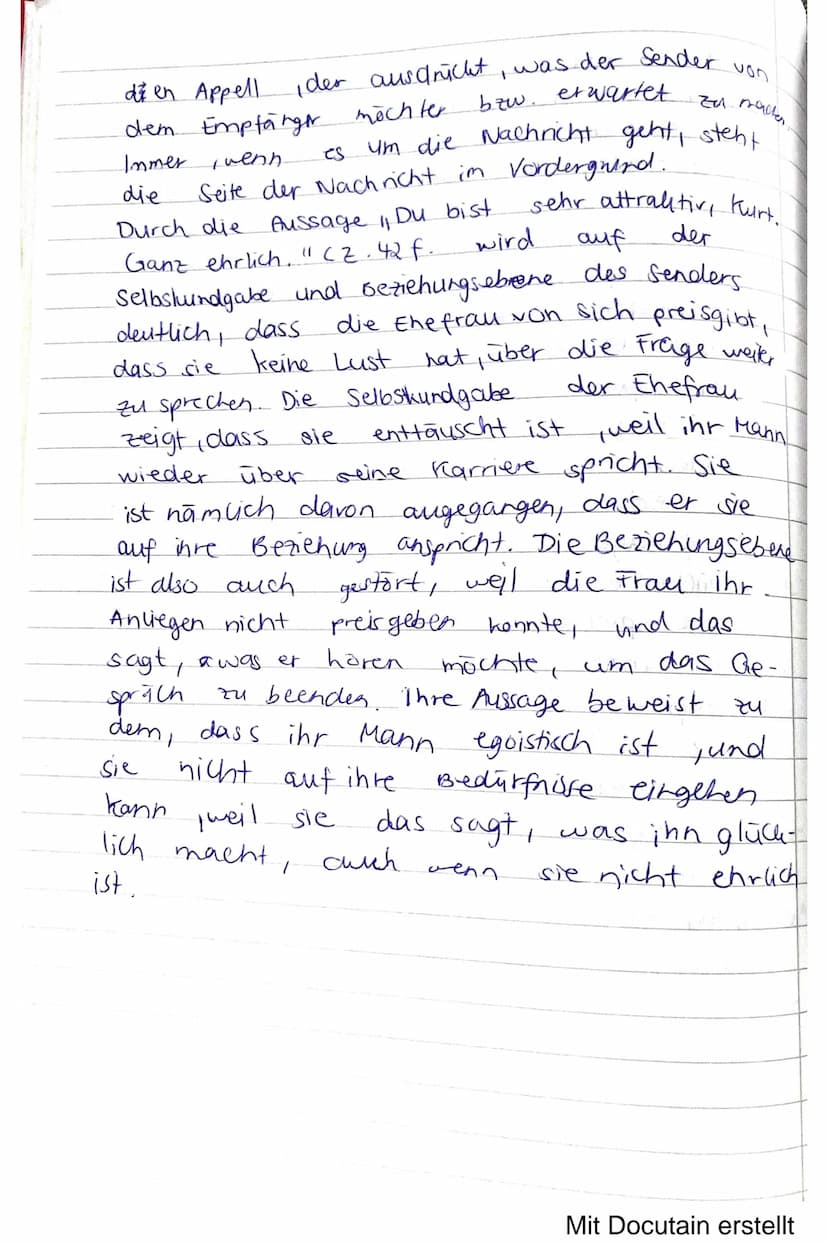 den Appell, der ausdrückt, was der Sender von
dem Empfänger möchte bzw. erwartet zu machen.
Immer, wenn es um die Nachricht geht, steht
die Seite der Nachricht im Vordergrund.
Durch die Aussage „Du bist sehr attraktiv, Kurt.
Ganz ehrlich." (Z. 42 f. wird auf der
Selbskundgabe und Beziehungsebene des Senders
deutlich, dass die Ehefrau von sich preisgibt,
dass sie keine Lust hat, über die Frage weiter
zu sprechen. Die Selbskundgabe der Ehefrau
zeigt, dass sie enttäuscht ist, weil ihr Mann
wieder über seine Karriere spricht. Sie
ist nämlich davon augegangen, dass er sie
auf ihre Beziehung anspricht. Die Beziehungsebene
ist also auch gestört, weil die Frau ihr
Anliegen nicht preisgeben konnte, und das
sagt, was er hören möchte, um das Ge-
spräch zu beenden. Ihre Aussage beweist zu
dem, dass ihr Mann egoistisch ist, und
sie nicht auf ihre Bedürfnisse eingehen
kann, weil sie das sagt, was ihn glück-
lich macht, auch wenn sie nicht ehrlich
ist.
Mit Docutain erstellt